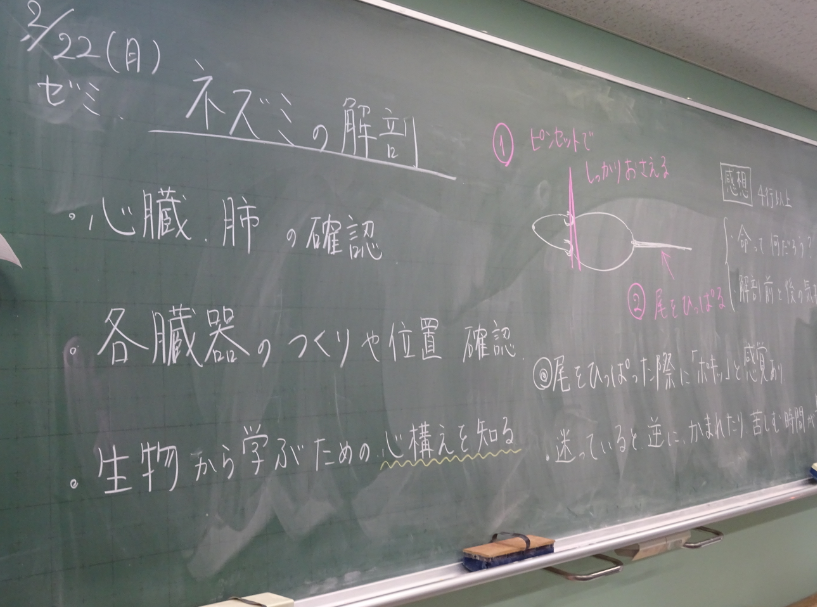 2/22(月)
ゼミ. ネズミの解剖
・心臓、肺の確認
・各臓器のつくりや位置 確認.
・生物から学ぶための心構えを知る
① ピンセットで
しっかりおさえる
② 尾をひっぱる
尾をひっぱった際に「ポキッ」と感覚あり
・迷っていると逆に、かまれたり苦しむ時間が
感想 4行以上
・命って何だろう?
・解剖前と後の気